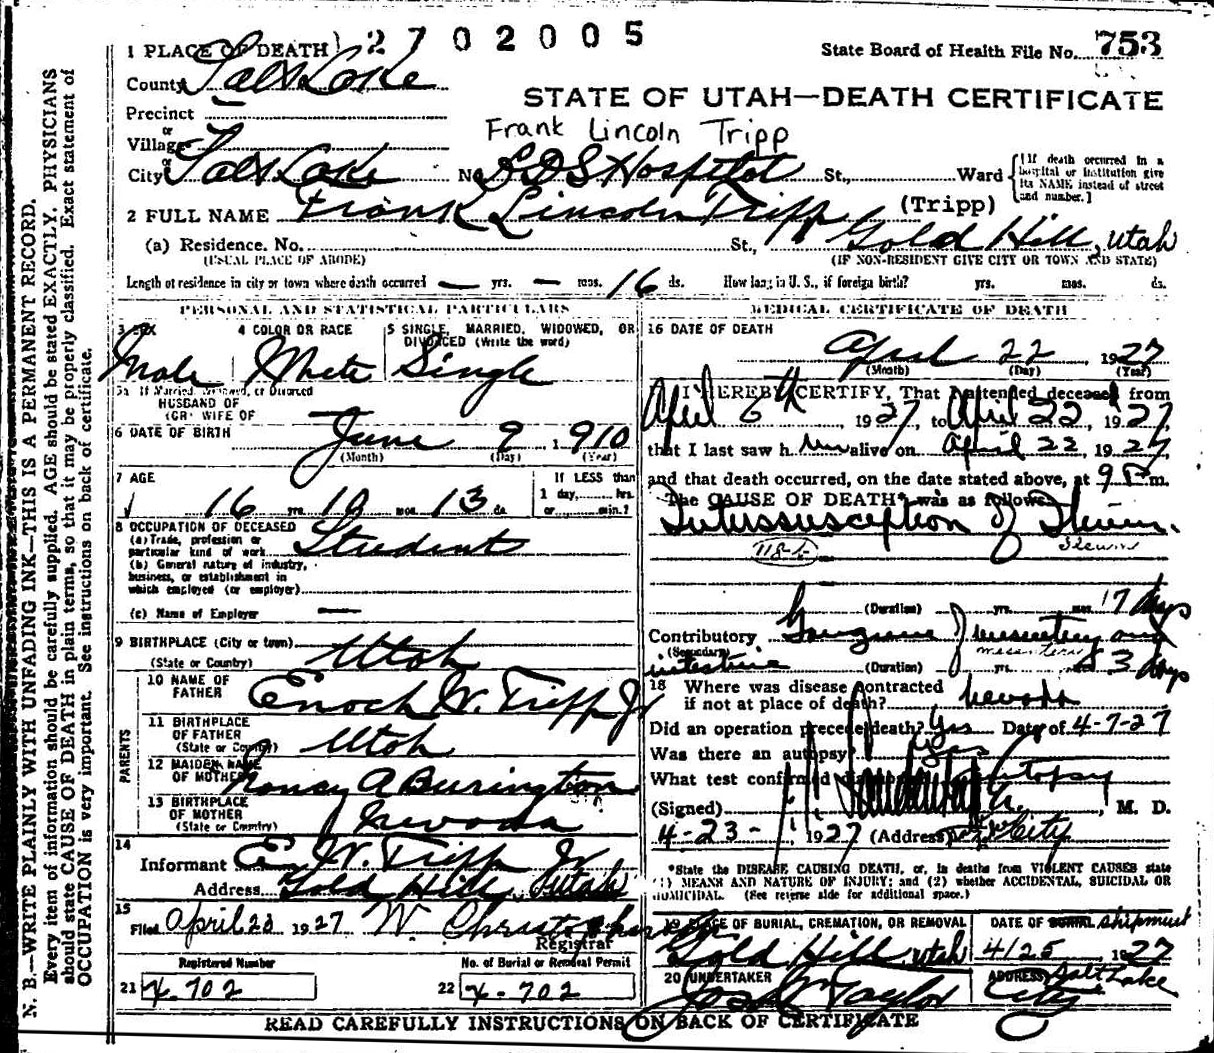 2702005
1 PLACE OF DEATH
State Board of Health File No. 753
County Salt Lake
STATE OF UTAH—DEATH CERTIFICATE
Precinct —
or
Village
Frank Lincoln Tripp
or
City Salt Lake No. LDS Hospital St., Ward
[If death occurred in a hospital or institution give its NAME instead of street and number.]
2 FULL NAME Frank Lincoln Tripp (Tripp)
(a) Residence. No. St., Gold Hill, Utah
(USUAL PLACE OF ABODE) (IF NON-RESIDENT GIVE CITY OR TOWN AND STATE)
Length of residence in city or town where death occurred — yrs. — mos. 16 ds. How long in U. S., if foreign birth? yrs. mos. ds.
PERSONAL AND STATISTICAL PARTICULARS
3 SEX 4 COLOR OR RACE 5 SINGLE, MARRIED, WIDOWED, OR DIVORCED (Write the word)
Male White Single
5a If Married, Widowed, or Divorced
HUSBAND OF
(OR) WIFE OF
6 DATE OF BIRTH June 9 1910
(Month) (Day) (Year)
7 AGE
IF LESS than
1 day, hrs.
or min.?
16 yrs. 10 mos. 13 ds.
8 OCCUPATION OF DECEASED
(a) Trade, profession or
particular kind of work Student
(b) General nature of industry,
business, or establishment in
which employed (or employer)
(c) Name of Employer —
9 BIRTHPLACE (City or town)
(State or Country) Utah
PARENTS
10 NAME OF
FATHER Enoch W. Tripp Jr
11 BIRTHPLACE
OF FATHER
(State or Country) Utah
12 MAIDEN NAME
OF MOTHER Nancy A Burington
13 BIRTHPLACE
OF MOTHER
(State or Country) Nevada
14
Informant E. W. Tripp Jr
Address Gold Hill, Utah
15
Filed April 23 1927 W. Christopherson
Registrar
Registered Number No. of Burial or Removal Permit
21 X-702 22 X-702
MEDICAL CERTIFICATE OF DEATH
16 DATE OF DEATH
April 22, 1927
(Month) (Day) (Year)
I HEREBY CERTIFY, That I attended deceased from
April 6th 1927, to April 22, 1927,
that I last saw him alive on April 22, 1927
and that death occurred, on the date stated above, at 9 P m.
The CAUSE OF DEATH* was as follows:
Intussusception of Ileum.
118-b Ileum
(Duration) yrs. mos. 17 days
Contributory Gangrene of mesentery and
(Secondary)
intestine (Duration) yrs. 3 days
18 Where was disease contracted
if not at place of death? Nevada
Did an operation precede death? Yes Date of 4-7-27
Was there an autopsy? Yes
What test confirmed diagnosis? Autopsy
(Signed) , M. D.
4-23-, 1927 (Address) City
*State the DISEASE CAUSING DEATH, or, in deaths from VIOLENT CAUSES state
(1) MEANS AND NATURE OF INJURY; and (2) whether ACCIDENTAL, SUICIDAL OR
HOMICIDAL. (See reverse side for additional space.)
19 PLACE OF BURIAL, CREMATION, OR REMOVAL DATE OF BURIAL shipment
Gold Hill, Utah 4/25 1927
20 UNDERTAKER ADDRESS Salt Lake
Jos Wm Taylor City
READ CAREFULLY INSTRUCTIONS ON BACK OF CERTIFICATE
N. B.—WRITE PLAINLY WITH UNFADING INK—THIS IS A PERMANENT RECORD.
Every item of information should be carefully supplied. AGE should be stated EXACTLY. PHYSICIANS
should state CAUSE OF DEATH in plain terms, so that it may be properly classified. Exact statement of
OCCUPATION is very important. See instructions on back of certificate.